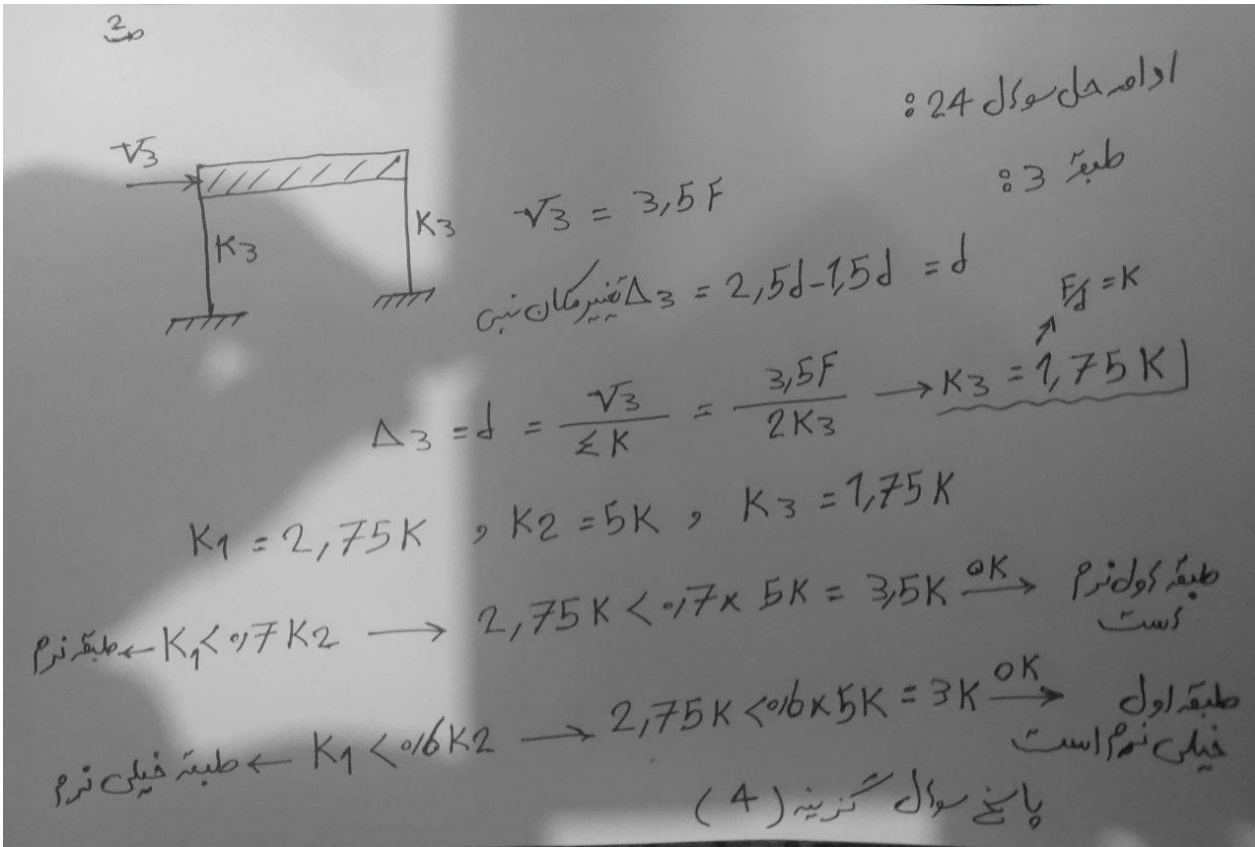 ص2
ادامه حل سوال 24 :
طبقه 3 :
V3
K3
K3
V3 = 3,5F
تغییر مکان نسبی Δ3 = 2,5d-1,5d = d
F/d = K
Δ3 = d = V3/ΣK = 3,5F/2K3 → K3 = 1,75K
K1 = 2,75K , K2 = 5K , K3 = 1,75K
طبقه نرم ← K1 < 0,7 K2 → 2,75K < 0,7 x 5K = 3,5K OK → طبقه اول نرم است
طبقه خیلی نرم ← K1 < 0,6 K2 → 2,75K < 0,6 x 5K = 3K OK → طبقه اول خیلی نرم است
پاسخ سوال گزینه (4)